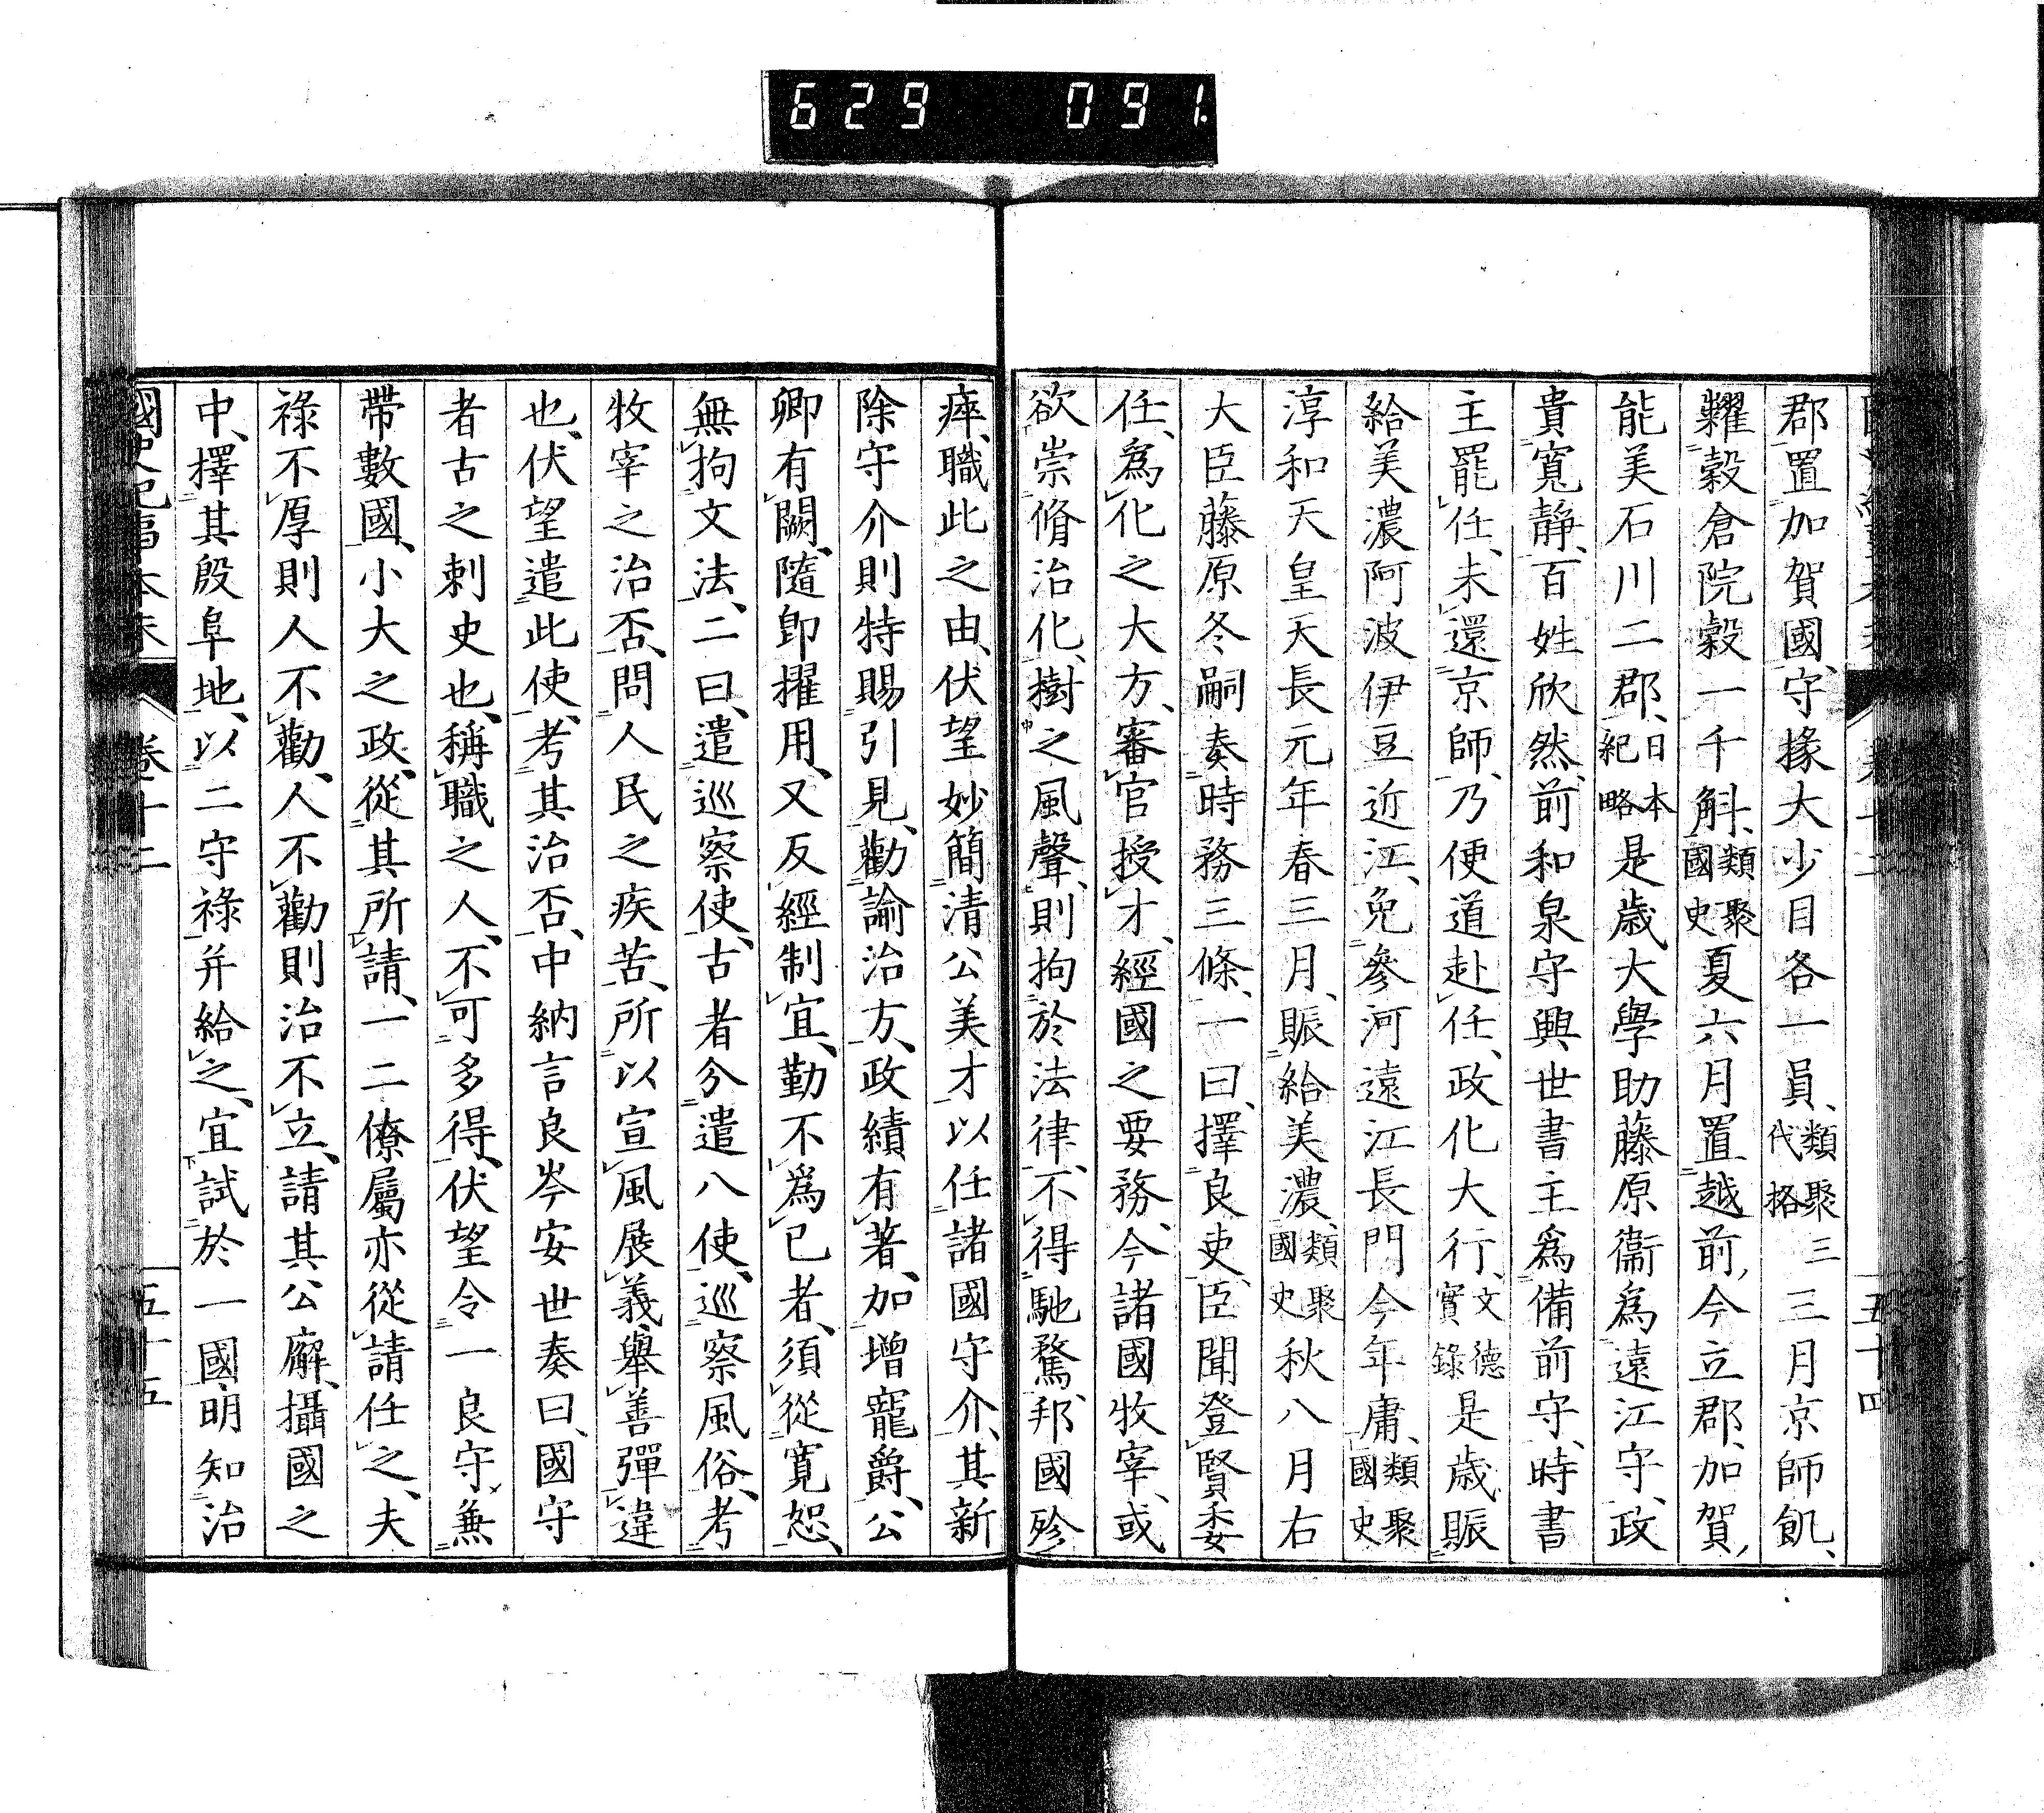 629 091
郡置加賀國、守掾大少目各一員、類聚三代格三月京師飢、
糶穀倉院穀一千斛、類聚國史夏六月置越前今立郡、加賀
能美石川二郡、日本紀略是歲大學助藤原衞爲遠江守、政
貴寬靜、百姓欣然、前和泉守興世書主爲備前守、時書
主罷任、未還京師、乃便道赴任、政化大行、文德實錄是歲賑
給美濃阿波伊豆近江、免參河遠江長門今年庸、類聚國史
淳和天皇天長元年春三月、賑給美濃、類聚國史秋八月右
大臣藤原冬嗣奏時務三條、一曰、擇良吏、臣聞登賢委
任、爲化之大方、審官授才、經國之要務、今諸國牧宰、或
欲崇脩治化、樹之風聲、則拘於法律、不得馳騖、邦國殄
瘁、職此之由、伏望妙簡清公美才以任諸國守介、其新
除守介則特賜引見、勸諭治方、政績有著、加增寵爵、公
卿有闕、隨卽擢用、又反經制宜、勤不爲已者、須從寬恕、
無拘文法、二曰、遣巡察使、古者分遣八使、巡察風俗、考
牧宰之治否、問人民之疾苦、所以宣風展義、舉善彈違
也、伏望遣此使、考其治否、中納言良岑安世奏曰、國守
者古之刺史也、稱職之人、不可多得、伏望令一良守、兼
帶數國、小大之政、從其所請、一二僚屬亦從請任之、夫
祿不厚則人不勸、人不勸則治不立、請其公廨、攝國之
中、擇其殷阜地、以二守祿并給之、宜試於一國、明知治
國史紀事本末 卷十二 五十五